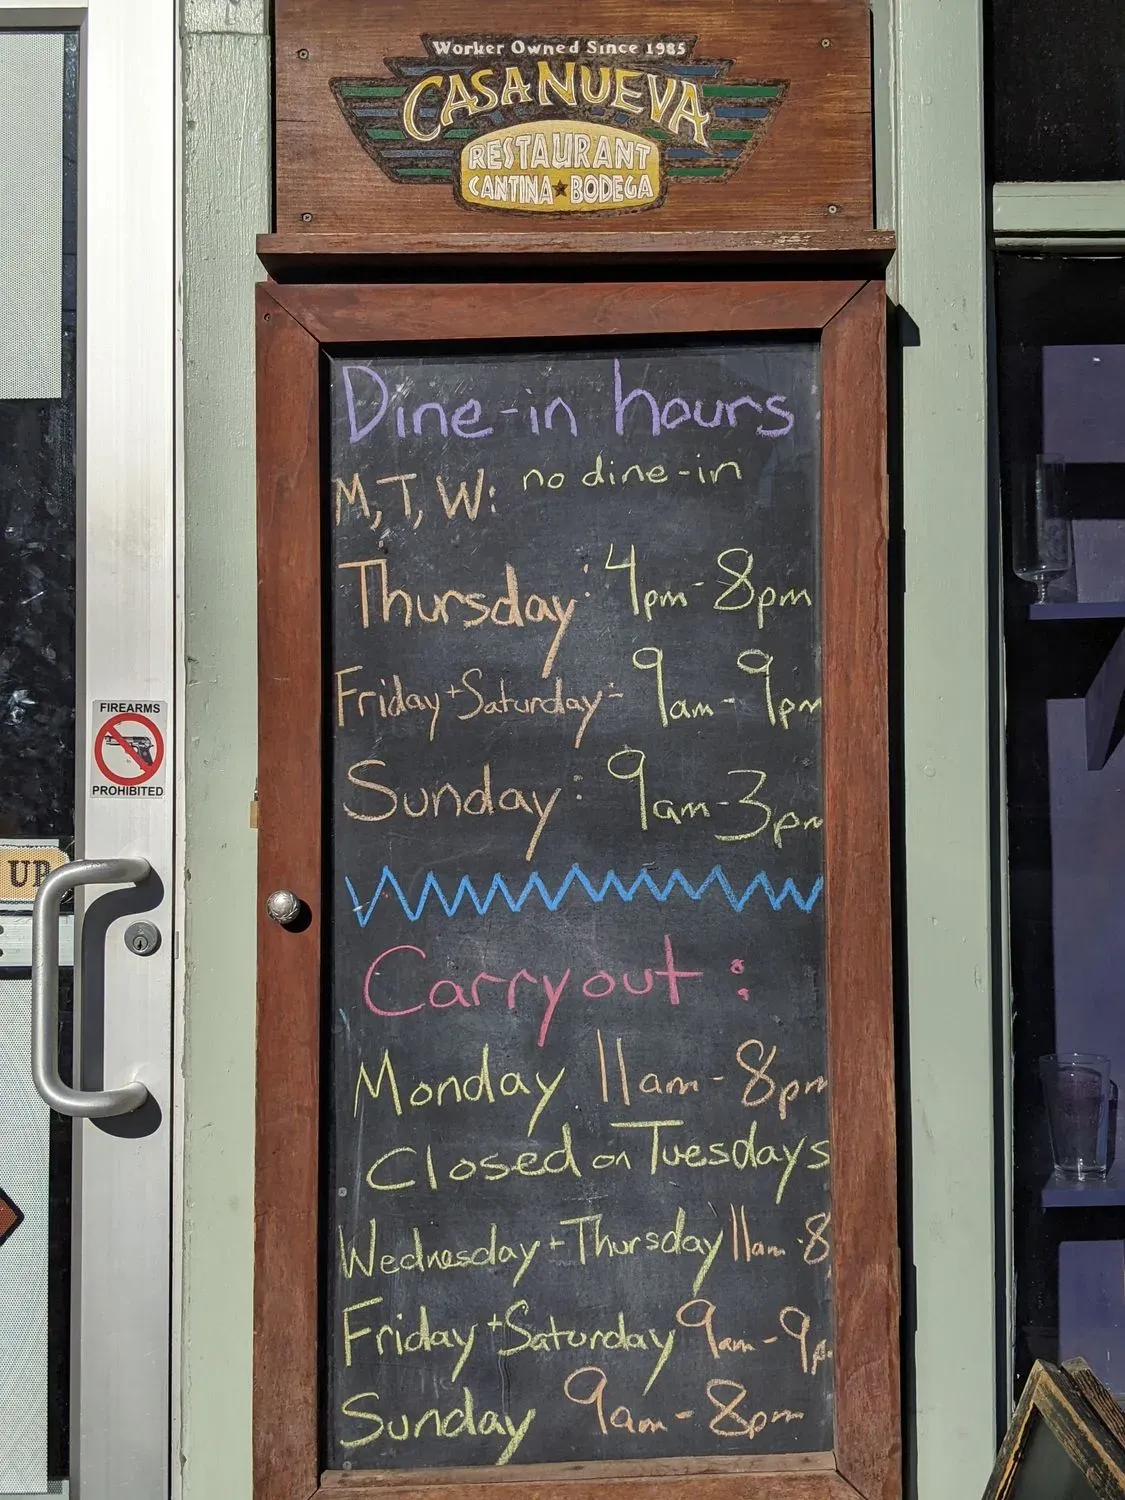 Worker Owned Since 1985
CASA NUEVA
RESTAURANT
CANTINA ★ BODEGA
Dine-in hours
M, T, W: no dine-in
Thursday: 4pm-8pm
Friday + Saturday: 9am-9pm
Sunday: 9am-3pm
FIREARMS
PROHIBITED
UP
Carryout:
Monday 11am-8pm
Closed on Tuesdays
Wednesday + Thursday 11am-8
Friday + Saturday 9am-9p
Sunday 9am-8pm